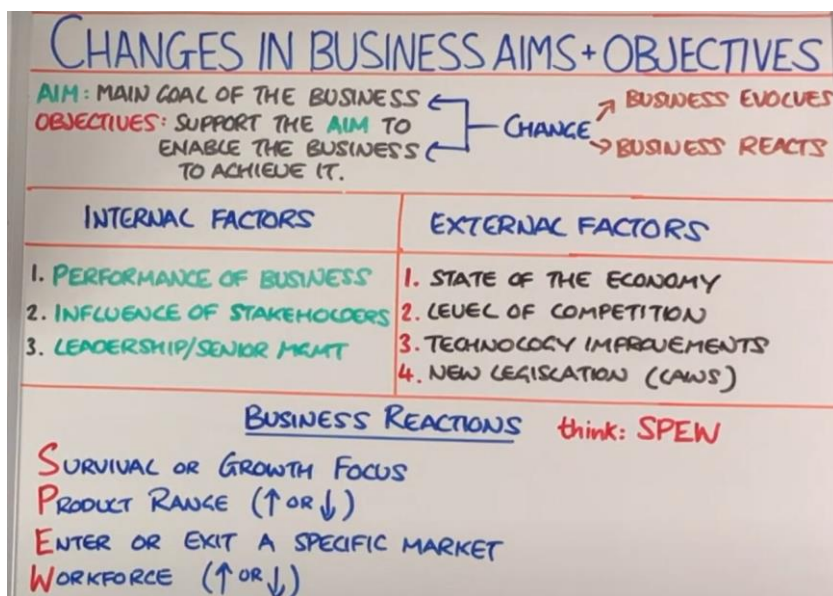 CHANGES IN BUSINESS AIMS + OBJECTIVES
AIM: MAIN GOAL OF THE BUSINESS
OBJECTIVES: SUPPORT THE AIM TO
ENABLE THE BUSINESS
TO ACHIEVE IT.
CHANGE
BUSINESS EVOLVES
BUSINESS REACTS
INTERNAL FACTORS
1. PERFORMANCE OF BUSINESS
2. INFLUENCE OF STAKEHOLDERS
3. LEADERSHIP/SENIOR MGMT
EXTERNAL FACTORS
1. STATE OF THE ECONOMY
2. LEVEL OF COMPETITION
3. TECHNOLOGY IMPROVEMENTS
4. NEW LEGISLATION (LAWS)
BUSINESS REACTIONS think: SPEW
SURVIVAL OR GROWTH FOCUS
PRODUCT RANGE (↑ OR ↓)
ENTER OR EXIT A SPECIFIC MARKET
WORKFORCE (↑ OR ↓)